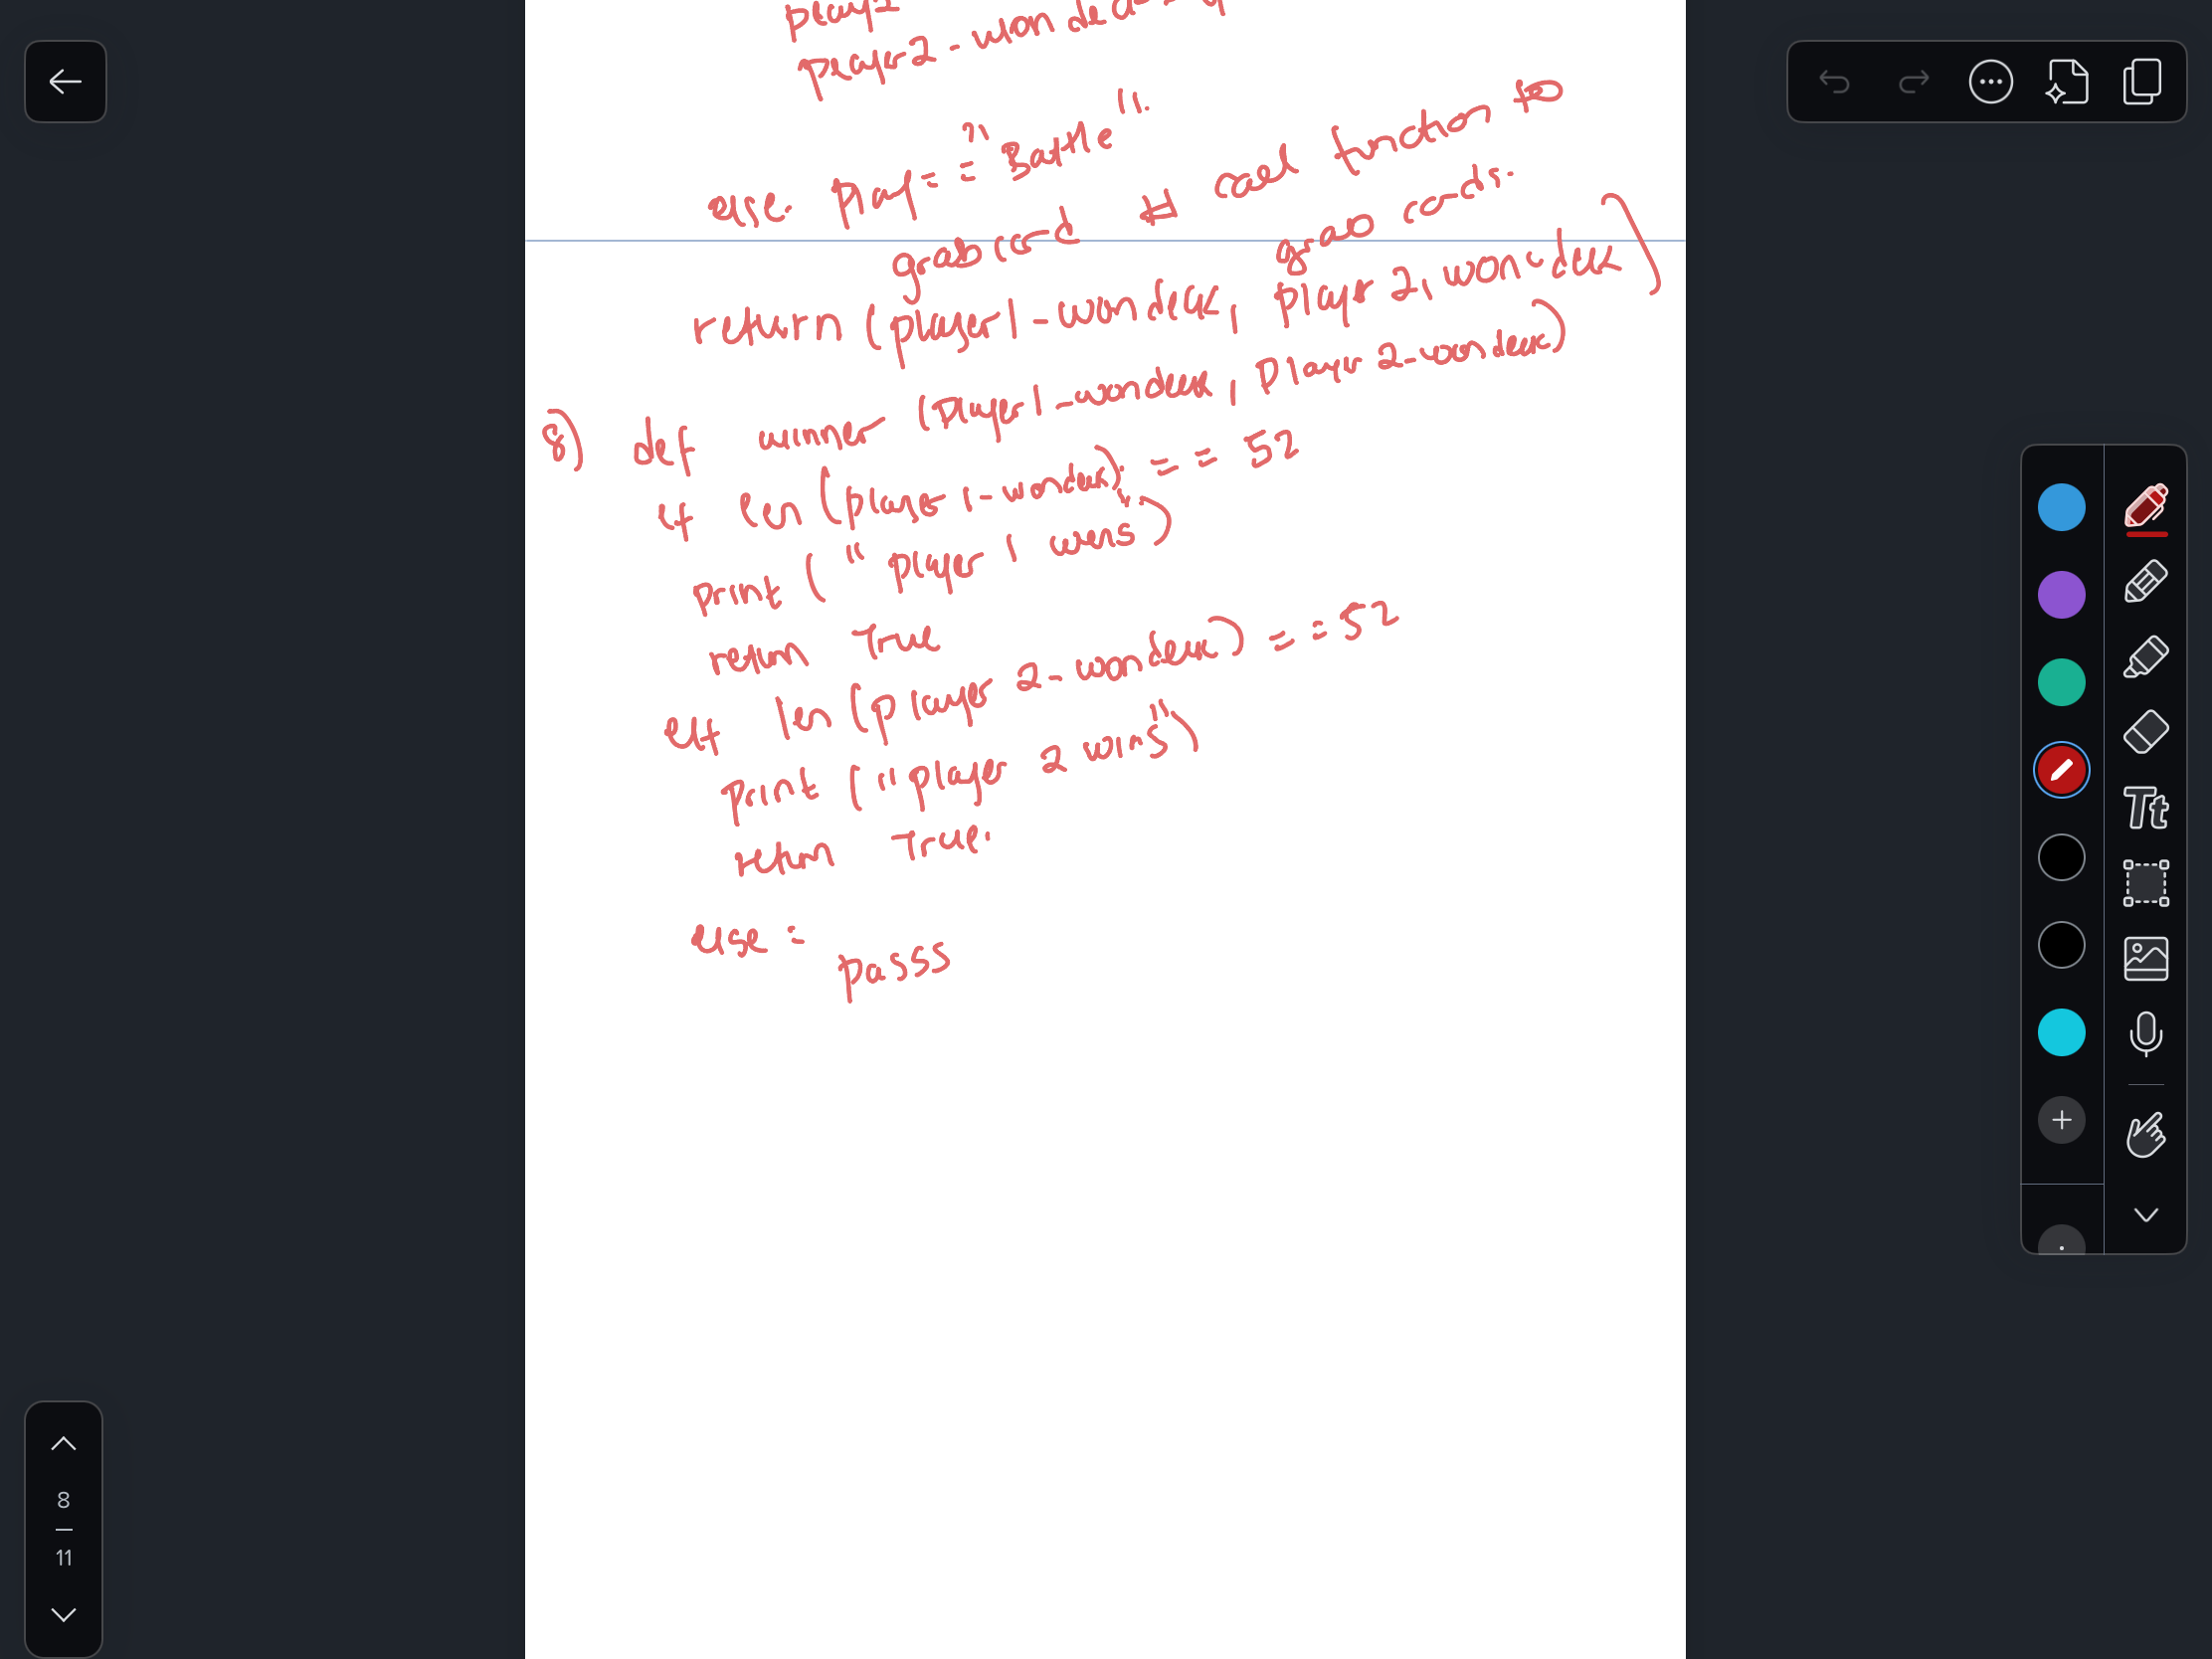 player2-wonde
else. play== "Battle".
grabcard # call function to
grab cards.
return (player1-wondeck, player2, won-deck)
8) def winner (player1-wondeck, Player 2-wondeck)
if len (player 1-wondeck); == 52
print ("player 1 wins")
return True
elif len (player 2-wondeck) == 52
print ("player 2 wins")
return True.
else =
passs
Tt
8
11